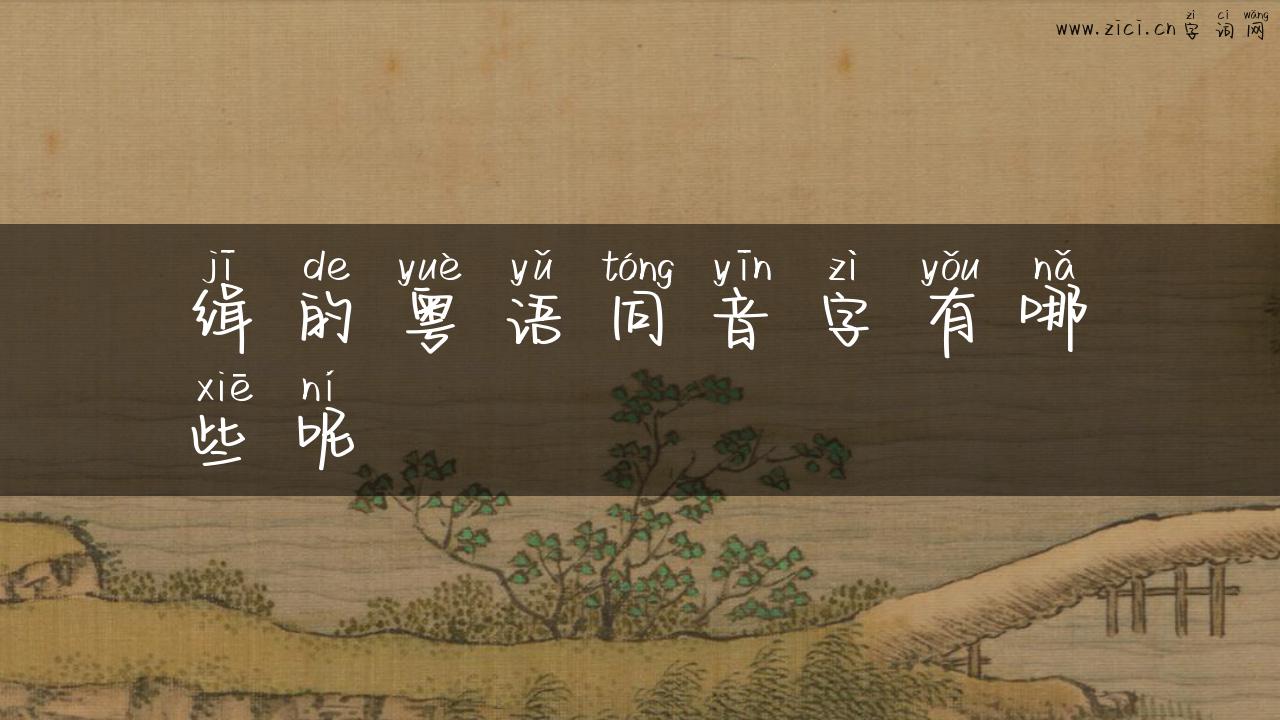 zì cí wǎng
www.zici.cn 字 词 网
jī de yuè yǔ tóng yīn zì yǒu nǎ
缉 的 粤 语 同 音 字 有 哪
xiē ní
些 呢